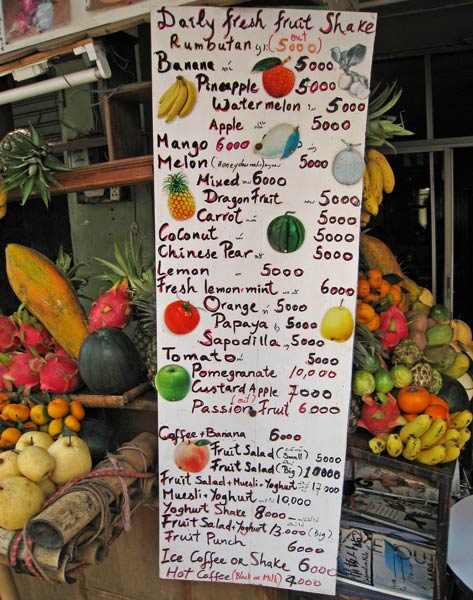 Daily fresh fruit Shake
Rumbutan (5000) out
Banana 5000
Pineapple 5000
Water melon 5000
Apple 5000
Mango 6000
Melon (Honeydew melon) 5000
Mixed 6000
Dragon Fruit 5000
Carrot 5000
Coconut 5000
Chinese Pear 5000
Lemon 5000
Fresh lemon+mint 6000
Orange 5000
Papaya 5000
Sapodilla 5000
Tomato 5000
Pomegranate 10,000
Custard Apple 7000
Passion Fruit (out) 6000
Coffee + Banana 6000
Fruit Salad (Small) 5000
Fruit Salad (Big) 10000
Fruit Salad + Muesli + Yoghurt 17,000
Muesli + Yoghurt 10,000
Yoghurt Shake 8000
Fruit Salad + Yoghurt 13.000 (Big)
Fruit Punch 6000
Ice Coffee or Shake 6000
Hot Coffee (Black or Milk) 4000